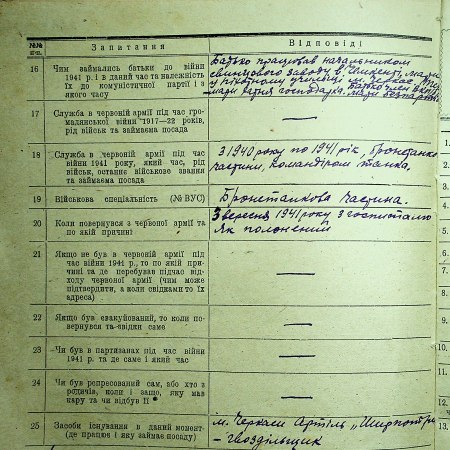 №№ п-п.
Запитання
Відповіді
16
Чим займались батьки до війни
1941 р. і в даний час та належність
їх до комуністичної партії і з
якого часу
Батько працював начальником
свинцового заводу в. Чимкент, мати
у піхотному училищі м. Черкас.
Батько член ВКП(б)
мати хатня господарка. мати безпартійна
17
Служба в червоній армії під час гро-
мадянської війни 1917—22 років,
рід військ та займаєма посада
—
18
Служба в червоній армії під час
війни 1941 року, який час, рід
військ, останнє військове звання
та займаєма посада
З 1940 року по 1941 рік, бронетанко
частини, командіром танка.
19
Військова спеціальність (№ ВУС)
Бронетанкова частина.
20
Коли повернувся з червоної армії та
по якій причині
З вересня 1941 року з госпіталю
Як полонений
21
Якщо не був в червоній армії під
час війни 1941 р., то по якій при-
чині та де перебував підчас від-
ходу червоної армії (чим може
підтвердити, а коли свідками то їх
адреса)
—
22
Якщо був евакуйований, то коли по-
вернувся та звідки саме
—
23
Чи був в партизанах під час війни
1941 р. та де саме і який час
—
24
Чи був репресований сам, або хто з
родичів, коли і защо, яку мав
кару та чи відбув її
—
25
Засоби існування в даний момент
(де працює і яку займає посаду)
м. Черкаси Артіль „Ширпотр
– гвоздільщик